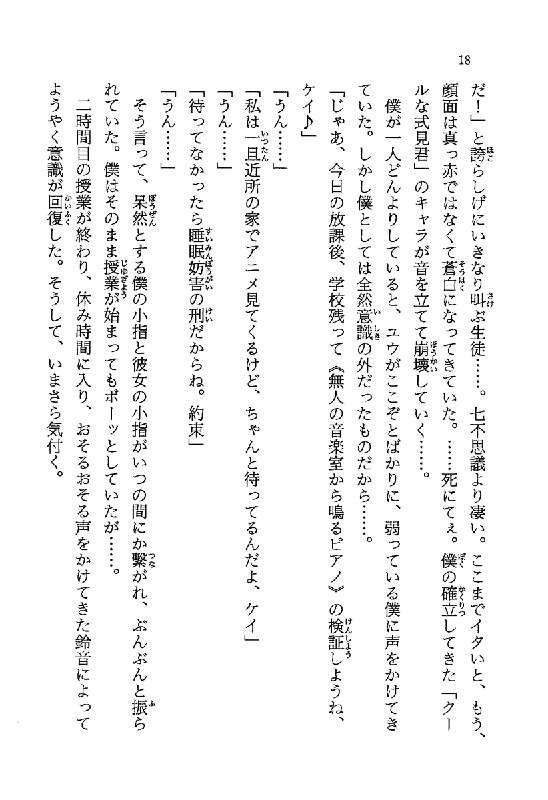 18
だ！」と誇らしげにいきなり叫ぶ生徒……。七不思議より凄い。ここまでイタいと、もう、
顔面は真っ赤ではなくて蒼白になってきていた。……死にてぇ。僕の確立してきた「クー
ルな式見君」のキャラが音を立てて崩壊していく……。
僕が一人どんよりしていると、ユウがここぞとばかりに、弱っている僕に声をかけてき
ていた。しかし僕としては全然意識の外だったものだから……。
「じゃあ、今日の放課後、学校残って《無人の音楽室から鳴るピアノ》の検証しようね、
ケイ♪」
「うん……」
「私は一旦近所の家でアニメ見てくるけど、ちゃんと待ってるんだよ、ケイ」
「うん……」
「待ってなかったら睡眠妨害の刑だからね。約束」
「うん……」
そう言って、呆然とする僕の小指と彼女の小指がいつの間にか繋がれ、ぶんぶんと振ら
れていた。僕はそのまま授業が始まってもボーッとしていたが……。
二時間目の授業が終わり、休み時間に入り、おそるおそる声をかけてきた鈴音によって
ようやく意識が回復した。そうして、いまさら気付く。